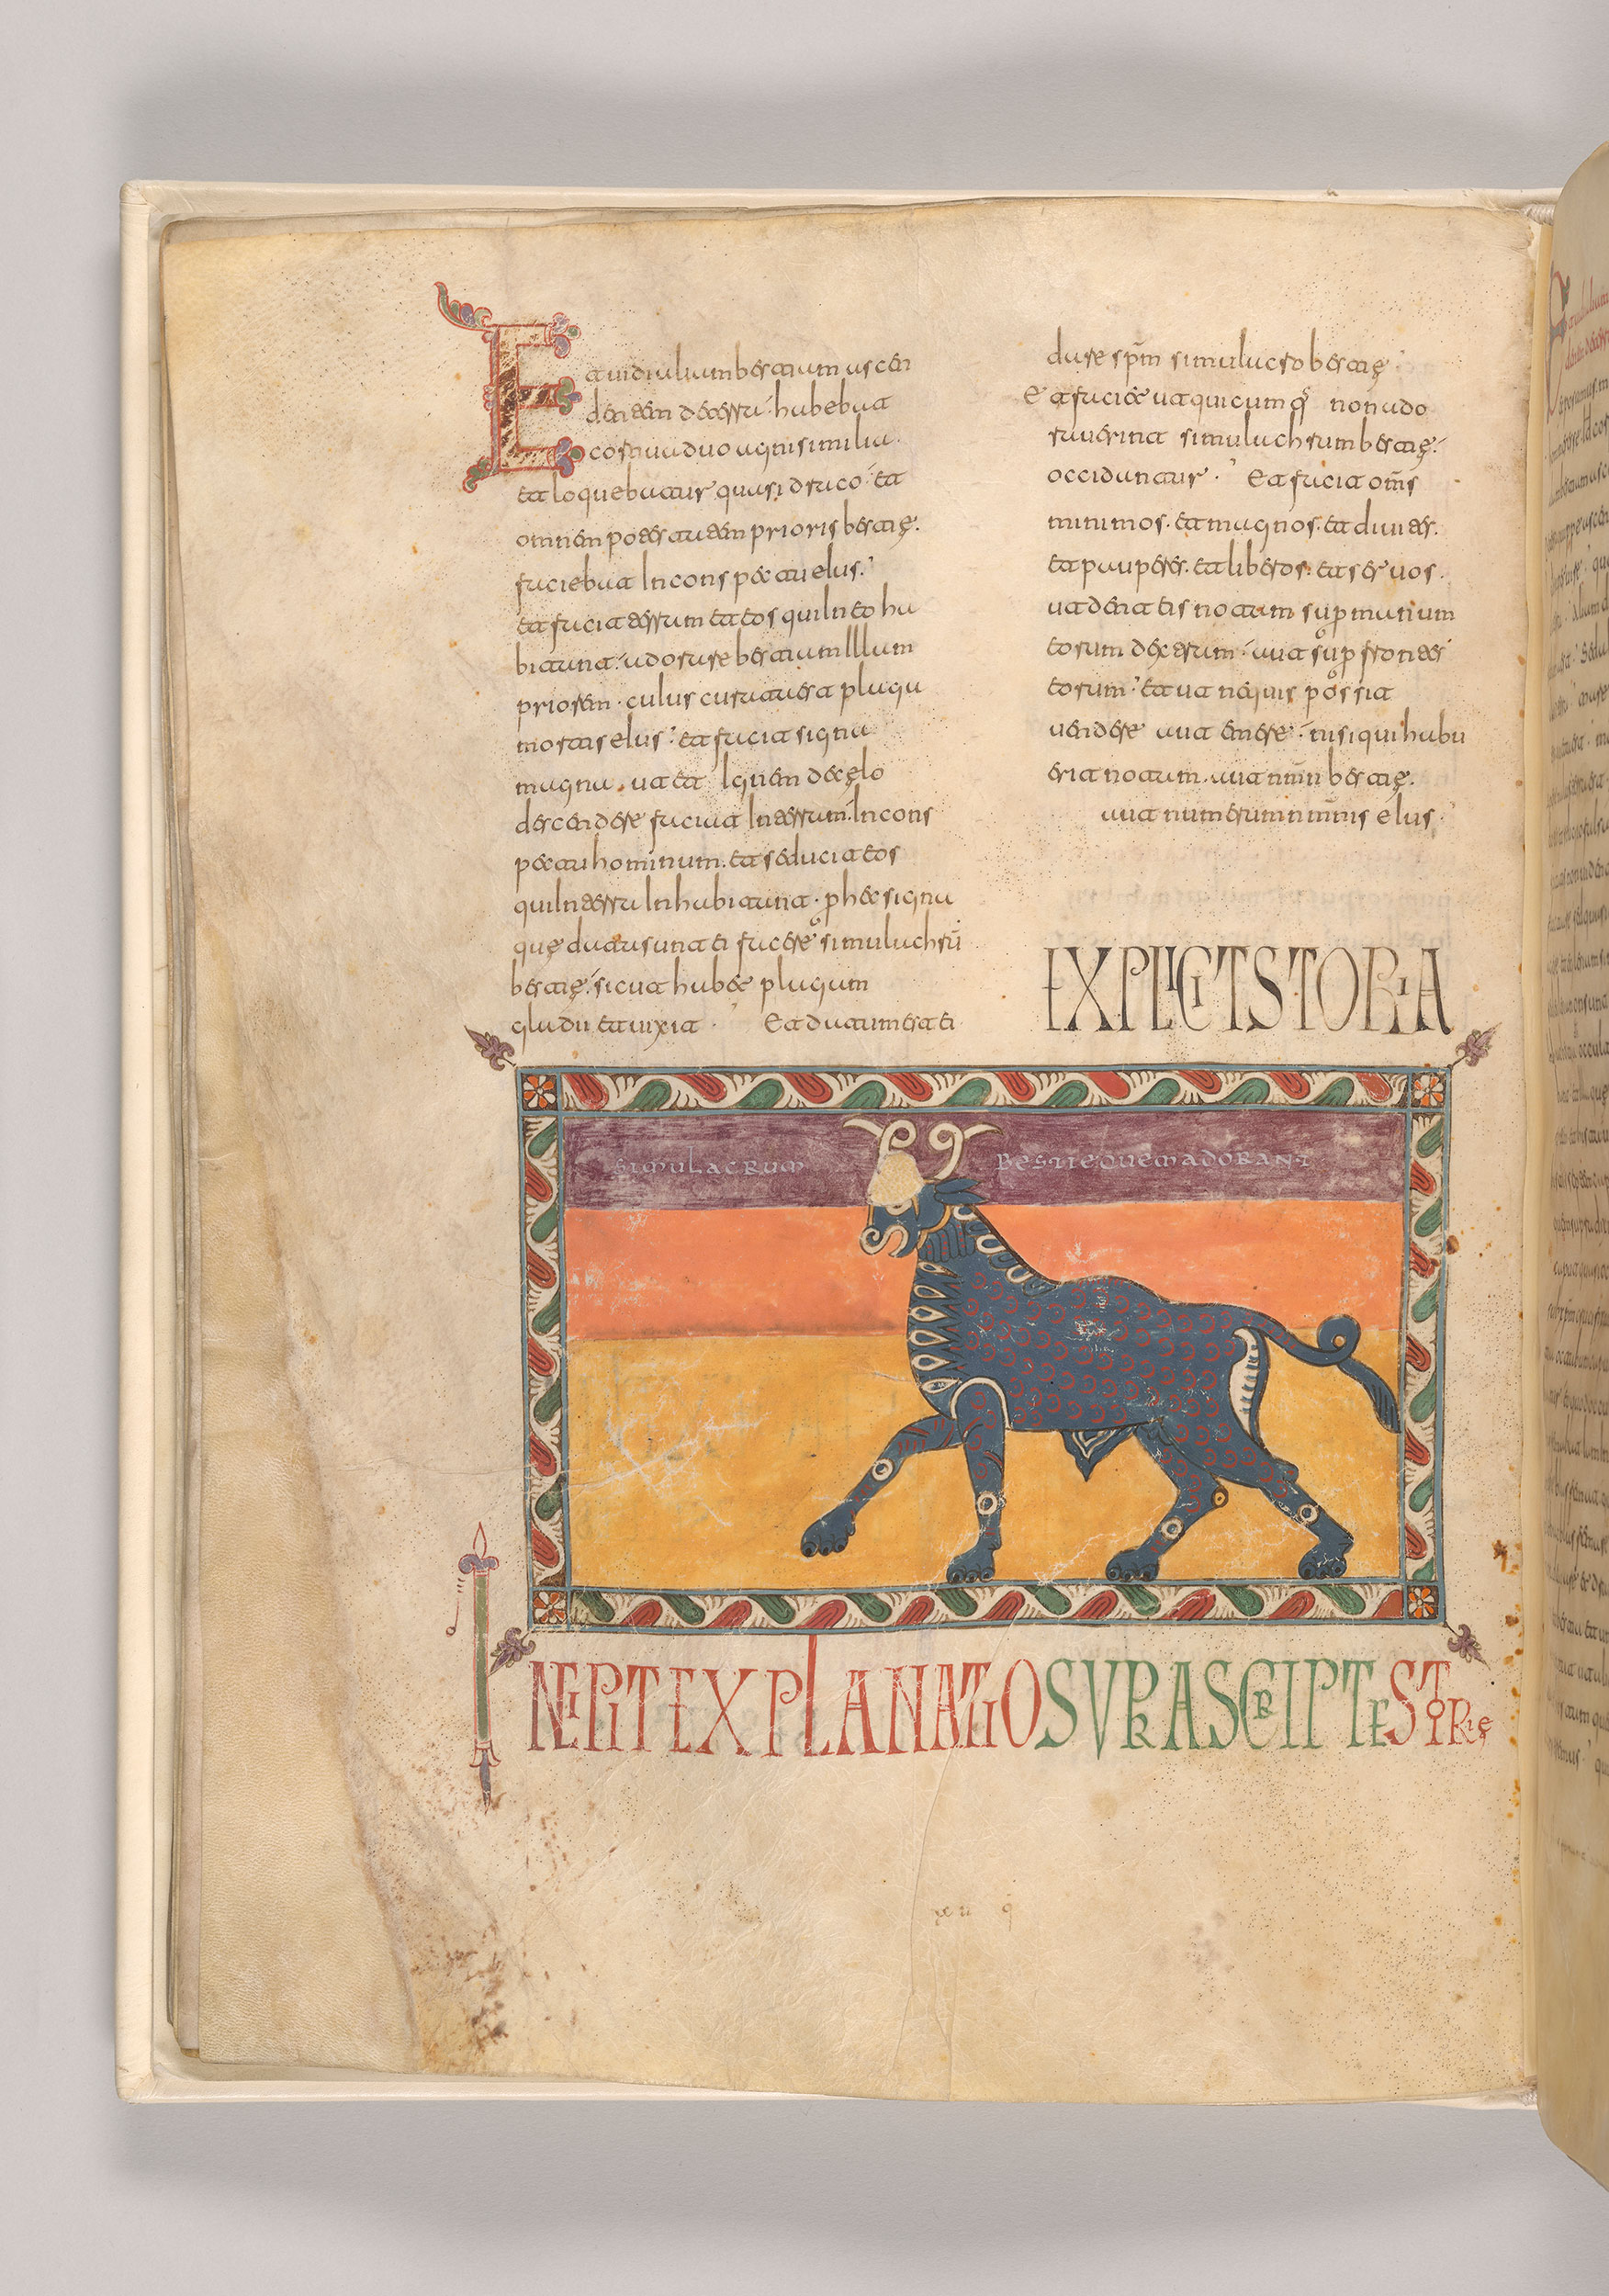 Et uidi aliam bestiam ascen
dentem de terra. habebat
cornua duo agni similia.
et loquebatur quasi draco. et
omnem potestatem prioris bestię.
faciebat In conspectu eIus.
et facit terram et eos qui In eo ha
bitant. adorare bestiam Illam
priorem. cuIus curata est plaga
mortis eIus. et facit signa
magna. ut et Ignem de cęlo
descendere faciat In terram. In cons
pectu hominum. et seducit eos
qui In terra Inhabitant. p hec signa
quę data sunt ei facere simulachrū
bestię. sicut habet plagam
gladii et uixit. Et datum est ei
dare spm̄ simulacro bestię.
Et faciet ut quicumq non ado
rauerint simulachrum bestię.
occidantur. Et facit om̄s
minimos. et magnos. et diuites.
et pauperes. et liberos. et seruos.
ut det eis notam sup manum
eorum dexteram. aut sup frontes
eorum. et ut nequis possit
uendere aut emere. nisi qui habu
erit notam. aut nm̄n bestię.
aut numerum nm̄nis eIus
EXPLICIT STORIA
SIMULACRUM BESTIE QUEM ADORANT
INCIPIT EXPLANATIO SUPRASCRIPTE STORIę